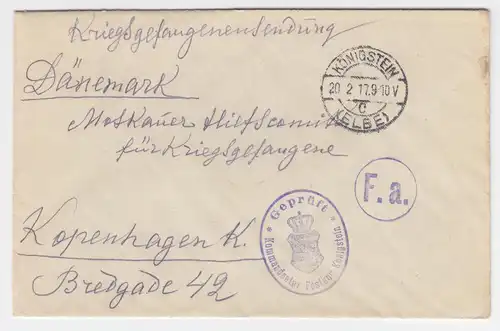 Kriegsgefangenensendung
Dänemark
Moskauer Hilfscomité
für Kriegsgefangene
Kopenhagen K.
Bredgade 42
KÖNIGSTEIN
20 2 17.9-10 V
c
(ELBE)
F. a.
Geprüft
Kommandantur Festung Königstein